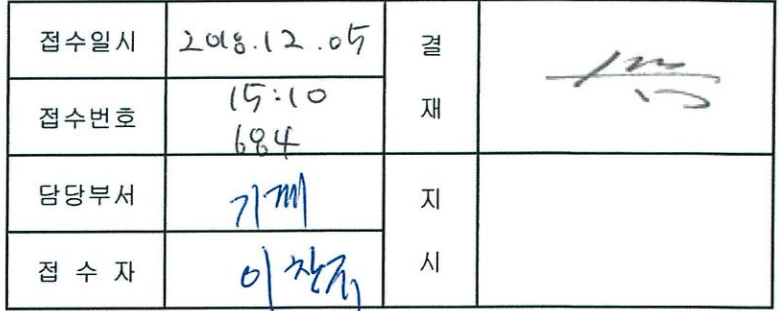 접수일시 2018.12.05 결
접수번호 15:10 재
684
담당부서 기계 지
접 수 자 이찬지 시